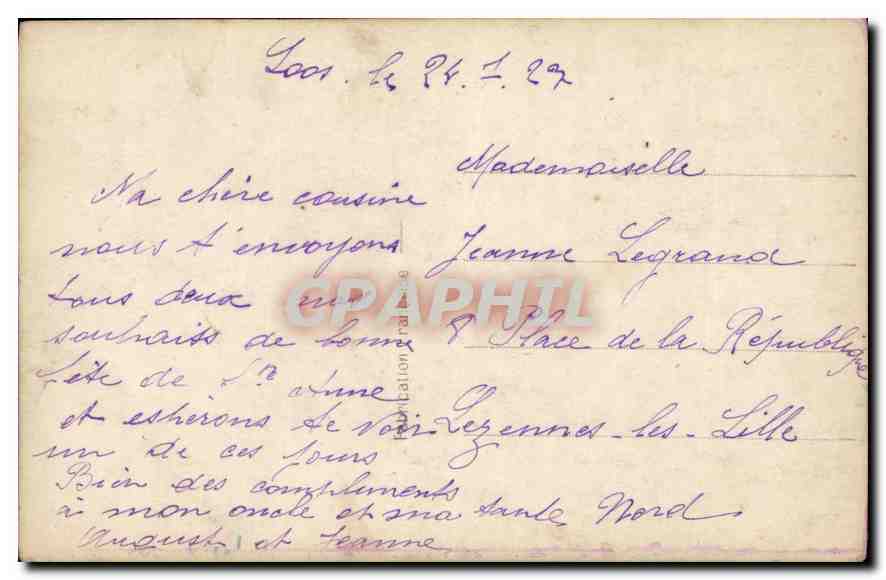 Loos. le 24.7.27
Ma chère cousine
nous t'envoyons
tous deux nos
souhaits de bonne
fête de Ste Anne
et espérons te voir
un de ces jours
Bien des compliments
à mon oncle et ma tante
August et Jeanne
Mademoiselle
Jeanne Legrand
8 Place de la République
Lezennes-les-Lille
Nord
Fabrication Française
CPAPHIL